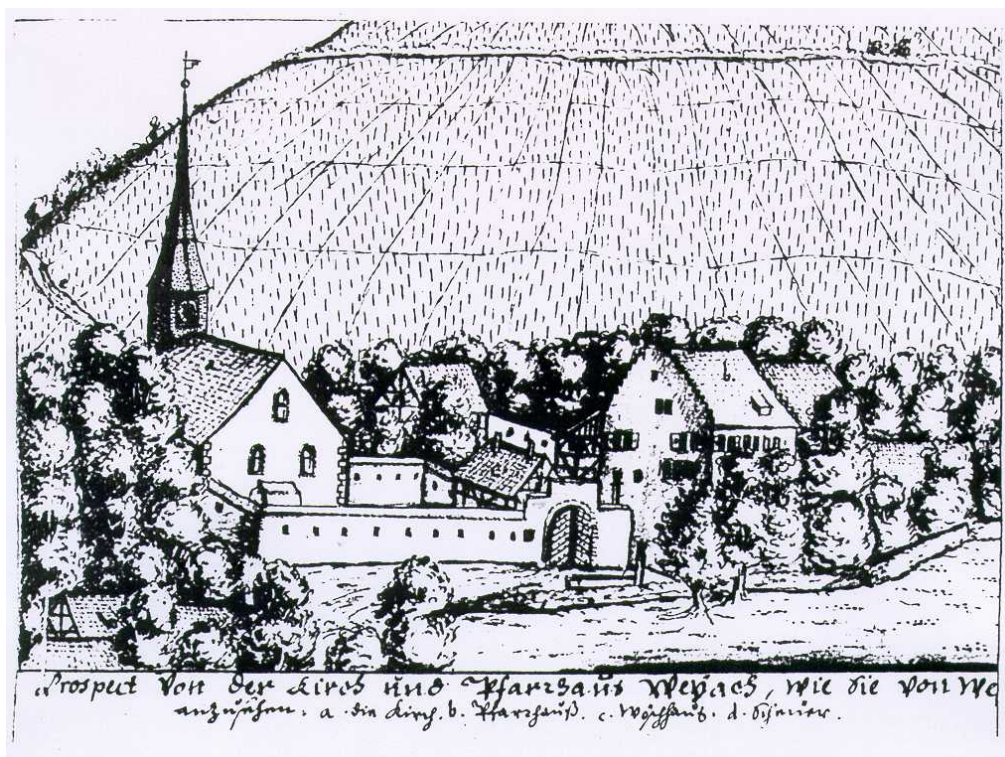 Prospect von der Kirch und Pfarrhaus Weyach, wie sie von We
anzusehen. a. die Kirch. b. Pfarrhauß. c. Wöschhaus. d. Scheuer.